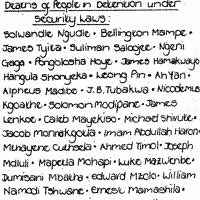 Deaths of People in Detention under
Security Laws:
Solwandle Ngudle • Bellington Mampe •
James Tyita • Suliman Saloojee • Ngeni
Gaga • Pongolosha Hoye • James Hamakwayo
Hangula Shonyeka • Leong Pin • Ah Yan •
Alpheus Madibe • J.B. Tubakwa • Nicodemus
Kgoathe • Solomon Modipane • James
Lenkoe • Caleb Mayekiso • Michael Shivute •
Jacob Monnakgotla • Imam Abdullah Haron
Mthayene Cuthsela • Ahmed Timol • Joseph
Mdluli • Mapetla Mohapi • Luke Mazwembe •
Dumisani Mbatha • Edward Mzolo • William
Namodi Tshwane • Ernest Mamashila •